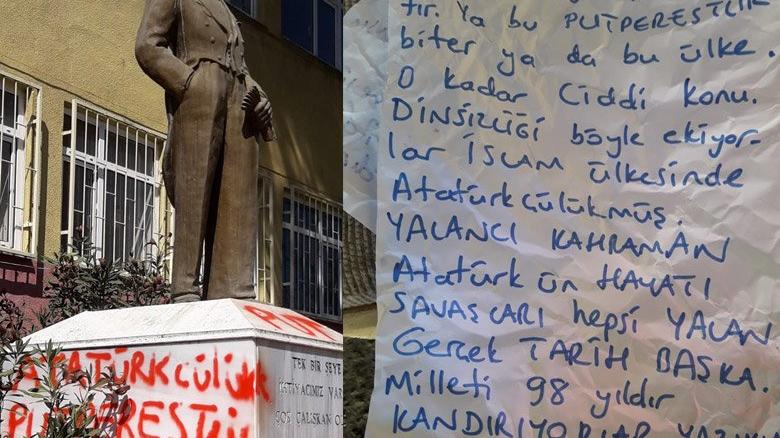 ATATÜRKCÜLÜK
PUTPERESTLİ
TEK BİR ŞEYE
İHTİYACIMIZ VAR
ÇOK ÇALIŞKAN OL
tir. Ya bu PUTPERESTLİK
biter ya da bu ülke.
O kadar Ciddi konu.
DİNSİZLİĞİ böyle ekiyor-
lar İSLAM ülkesinde
Atatürkçülükmüş.
YALANCI KAHRAMAN
Atatürk ün HAYATI
SAVAŞLARI hepsi YALAN
Gerçek TARİH BAŞKA.
Milleti 98 yıldır
KANDIRIYORLAR